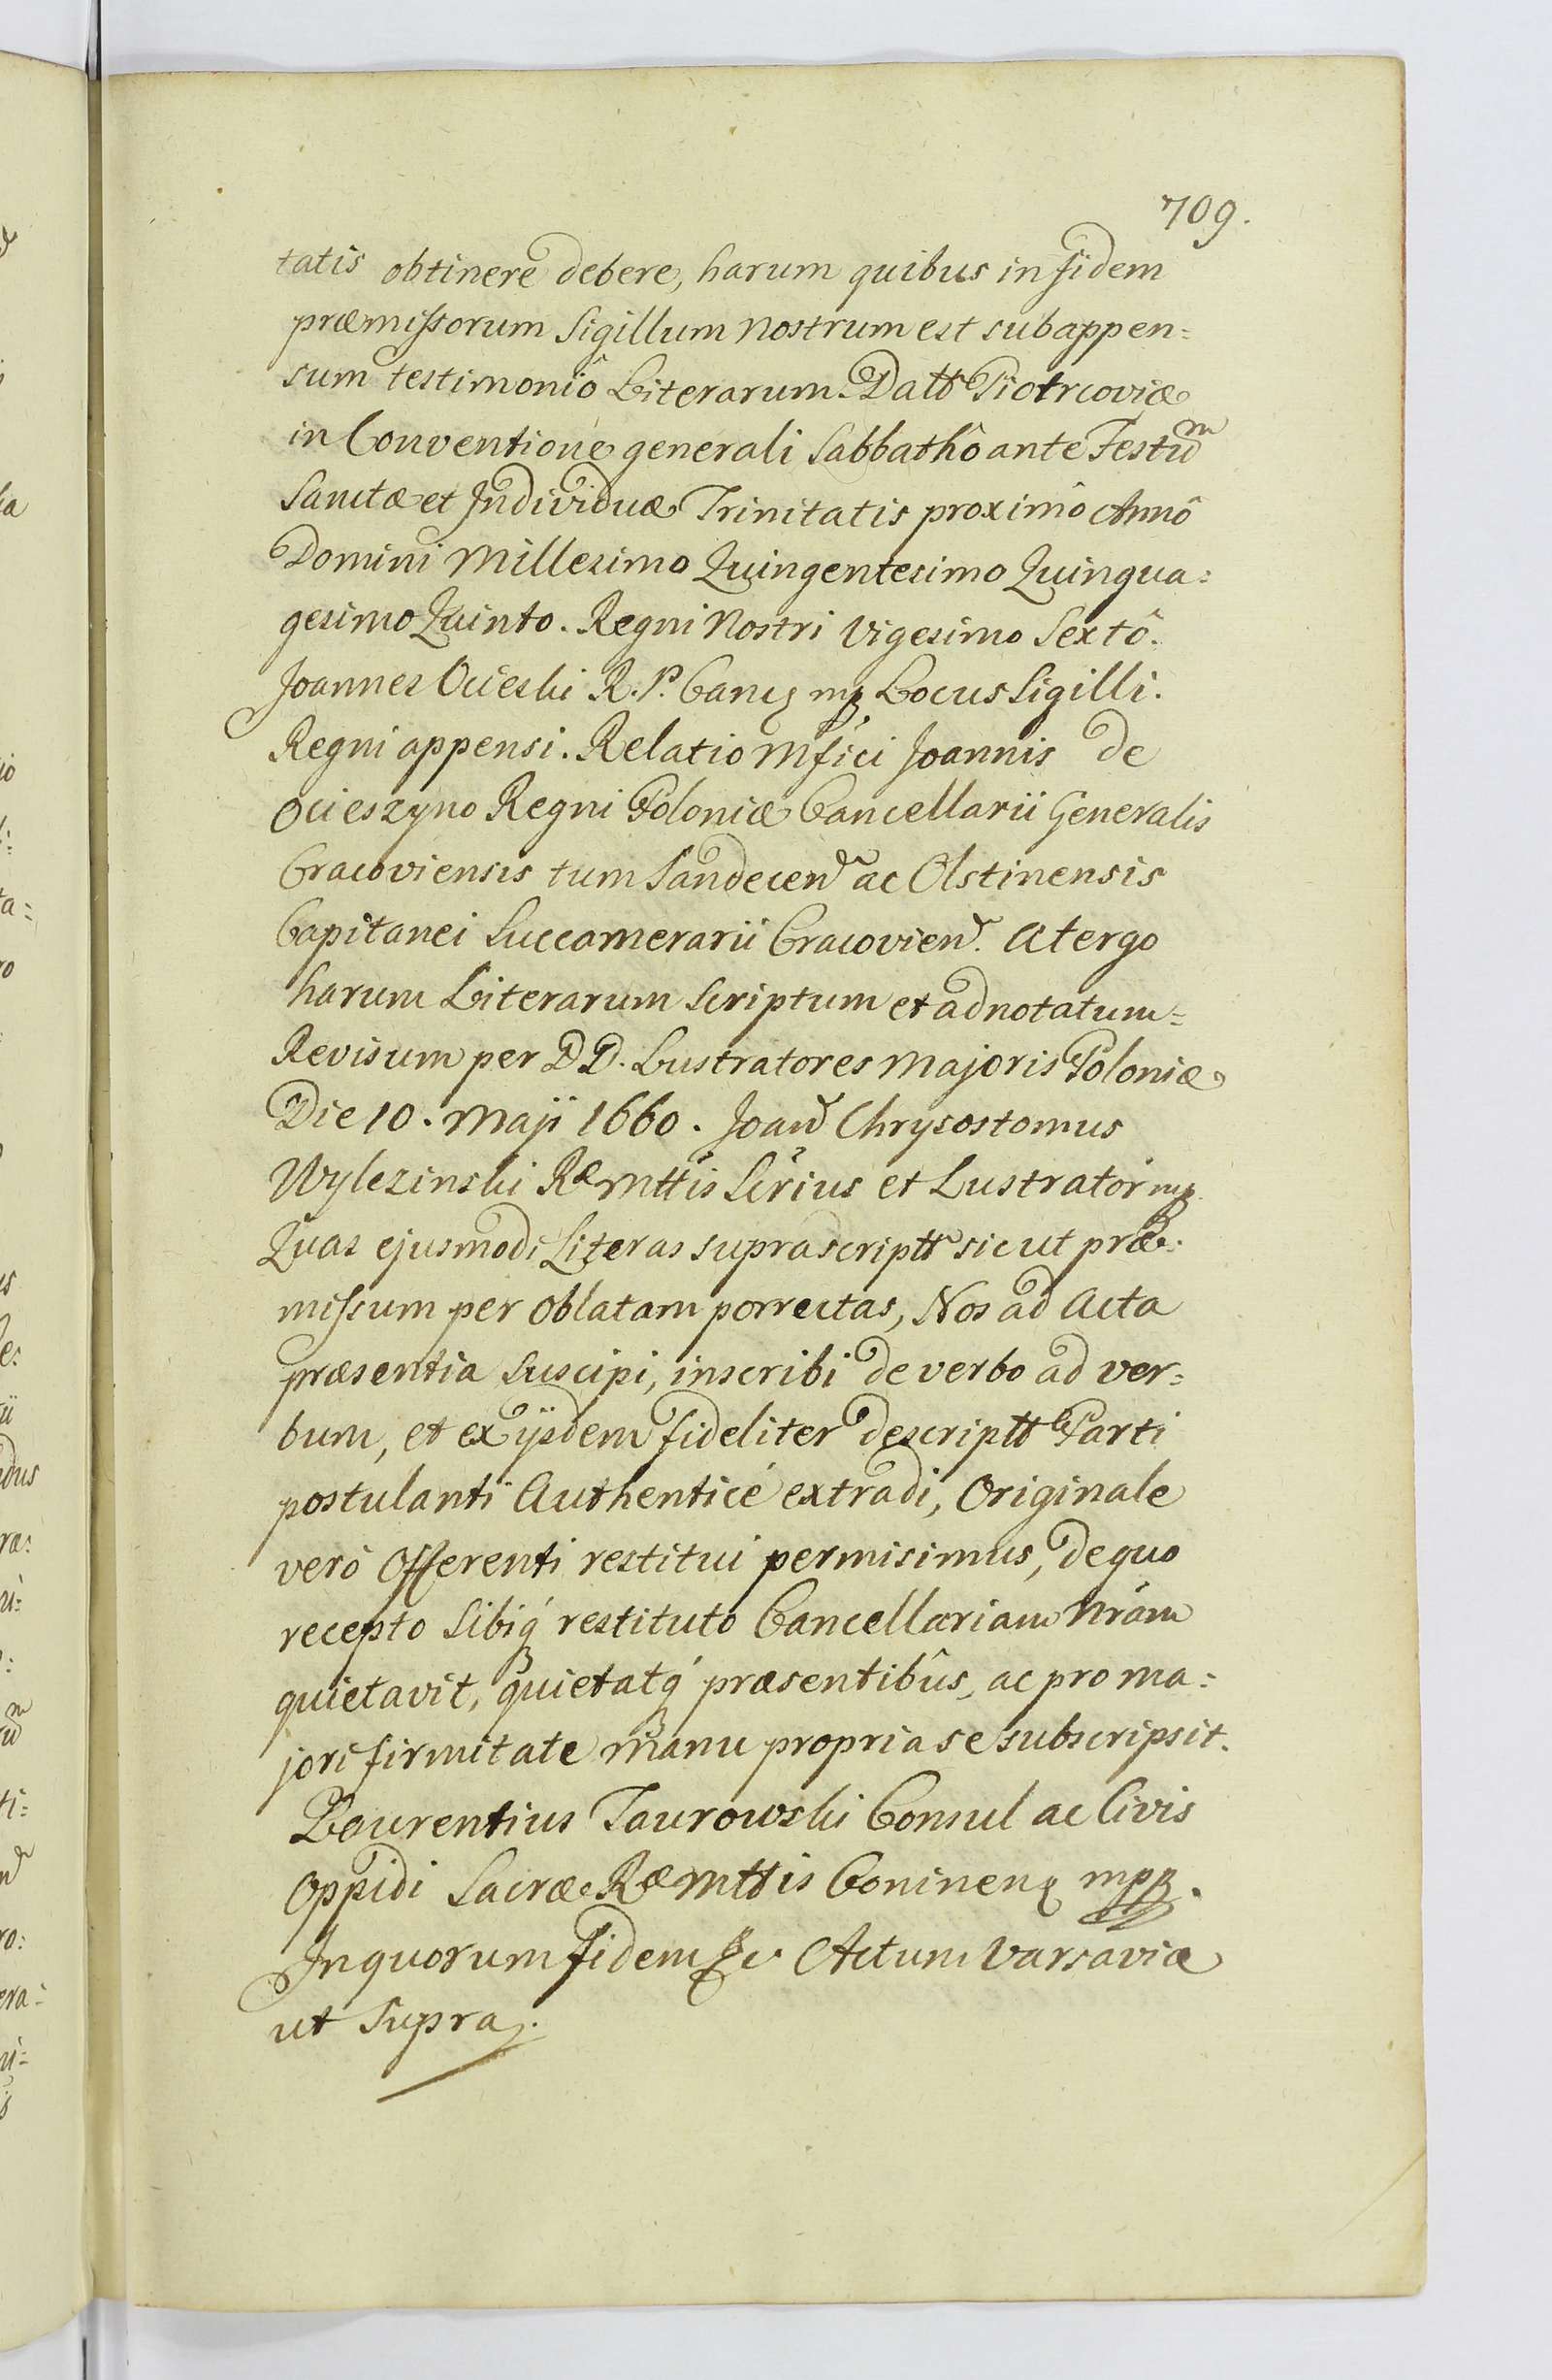 709.
tatis obtinere debere, harum quibus in fidem
præmissorum Sigillum nostrum est subappen=
sum testimoniô Literarum. Datt Piotrcoviæ
in Conventione generali Sabbathô ante Festum
Sanctæ et Individuæ Trinitatis proximô Annô
Domini Millesimo Quingentesimo Quinqua=
gesimo Quinto. Regni Nostri Vigesimo Sextô.
Joannes Ocieski R. P. Canc mp Locus Sigilli.
Regni appensi. Relatio Mfici Joannis de
Ocieszyno Regni Poloniæ Cancellarii Generalis
Cracoviensis tum Sandecen ac Olstinensis
Capitanei Succamerarii Cracovien. A tergo
harum Literarum Scriptum et adnotatum=
Revisum per DD. Lustratores Majoris Poloniæ
Die 10. Maji 1660. Joan Chrysostomus
Wylezinski Ræ Mttis Scrius et Lustrator mp
Quas ejusmodi Literas suprascriptt sicut præ=
missum per Oblatam porrectas, Nos ad Acta
præsentia Suscipi, inscribi de verbo ad ver=
bum, et ex ijsdem fideliter descriptt Parti
postulanti Authenticé extradi, Originale
verò Offerenti restitui permisimus, de quo
recepto Sibiq́ restituto Cancellariam Nrám
quietavit, quietatq́ præsentibûs, ac pro ma=
jori firmitate manu propria se subscripsit.
Laurentius Taurowski Consul ac Civis
Oppidi Sacræ Ræ Mttis Coninen mpp.
In quorum fidem &c Actum Varsaviæ
ut Supra.